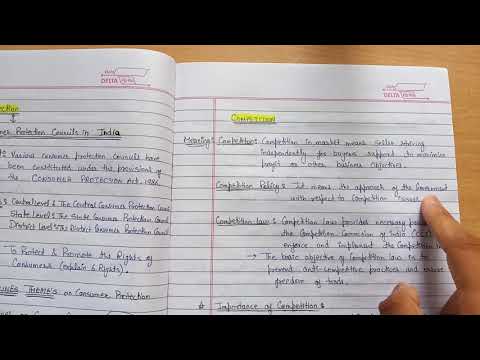 DELTA
ction
mer Protection Councils in India
Various consumer protection councils have
been constituted under the provisions of
the CONSUMER PROTECTION Act, 1986.
Central Level: The Central Consumer Protection Council
State Level: The State Consumer Protection Council
District Level: The District Consumer Protection Council
To Protect & Promote the Rights of
Consumers (explain 6 Rights).
on Consumer Protection
DELTA
COMPETITION
Meaning: Competition: Competition in market means seller striving
independently for buyers support to maximize
profit or other business objectives.
Competition Policy: It means the approach of the Government
with respect to Competition issues
Competition law: Competition law provides necessary powers
the Competition Commission of India (CCI)
enforce and implement the Competition
→ The basic objective of Competition law is to
prevent anti-competitive practices and ensure
freedom of trade.
Importance of Competition: